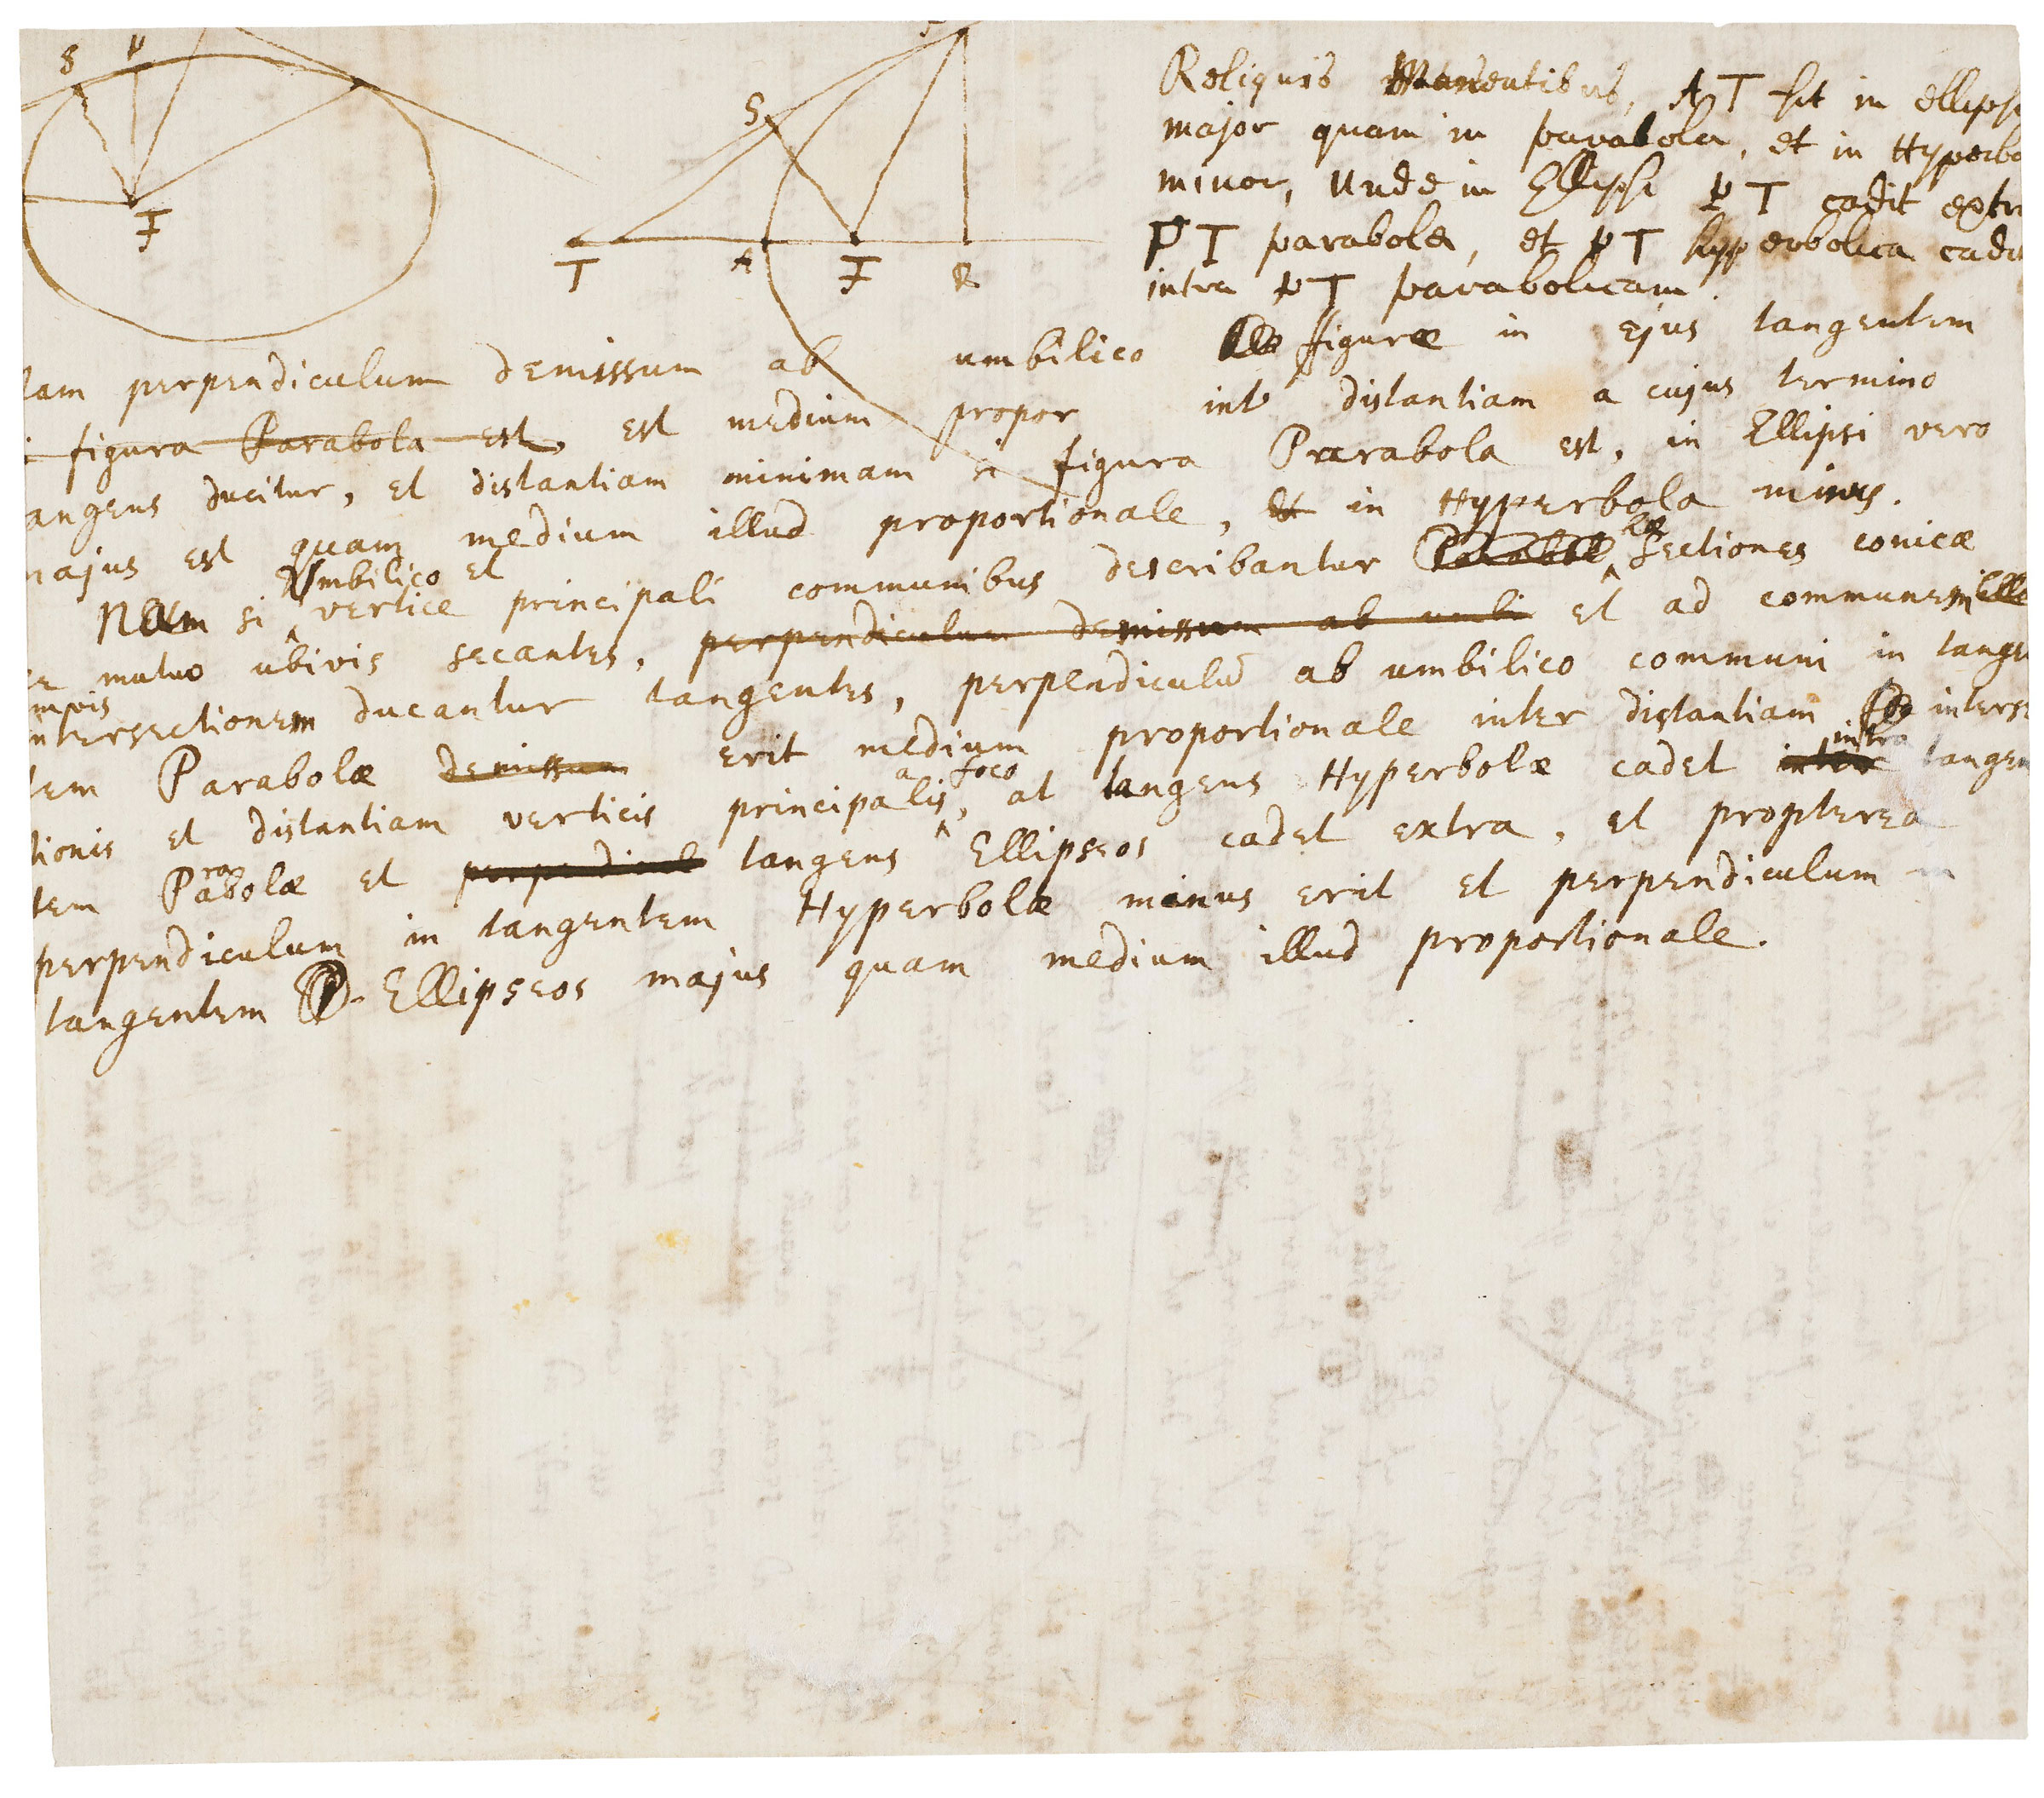 S P
F
S
T A F R
Reliquis Manentibus, AT fit in ellipsi
major quam in parabola, et in Hyperbo
minor, Unde in Ellipsi PT cadit extr
PT parabola, et PT hyperbolica cadi
intra PT parabolicam.
tam perpendiculum demissum ab umbilico figuræ in ejus tangentem
figura Parabola est, est medium propor int distantiam a cujus termino
angens ducitur, et distantiam minimam si figura Parabola est, in Ellipsi vero
majus est quam medium illud proportionale, et in Hyperbola minus.
Nam si Umbilico et vertice principali communibus describantur Parabol hæ sectiones conicæ
se mutuo ubivis secantes, perpendiculum demissum ab umbi et ad communem
mvis
intersectionem ducantur tangentes, perpendiculū ab umbilico communi in tange
tem Parabolæ demissum erit medium proportionale inter distantiam interse
tionis et distantiam verticis principalis a foco, at tangens Hyperbolæ cadet inter intra tangen
tem Parabolæ et perpendicul tangens Ellipseos cadet extra, et propterea
perpendiculum in tangentem Hyperbolæ minus erit et perpendiculum in
tangentem Ellipseos majus quam medium illud proportionale.